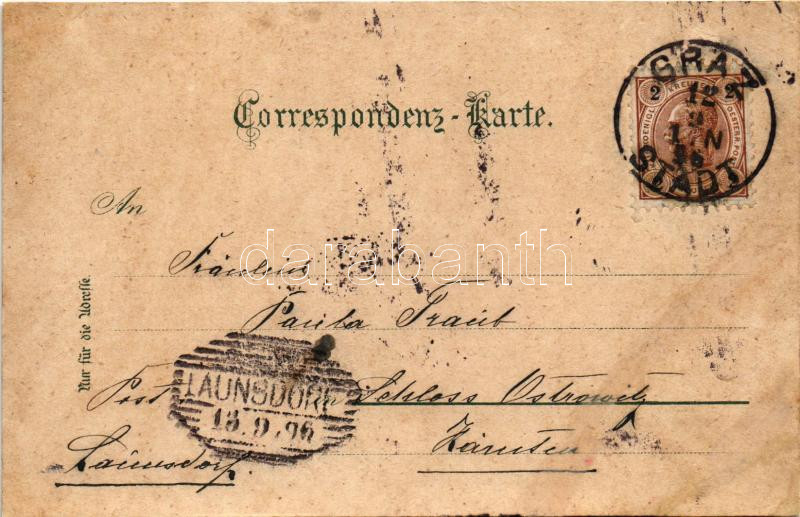 Correspondenz-Karte.
GRAZ
STADT
12
9
96
2 2
An
Nur für die Adresse.
Fräulein
darabanth
Paula Traub
Post Schloss Ostrowitz
LAUNSDORF
13.9.96
Launsdorf
Kärnten